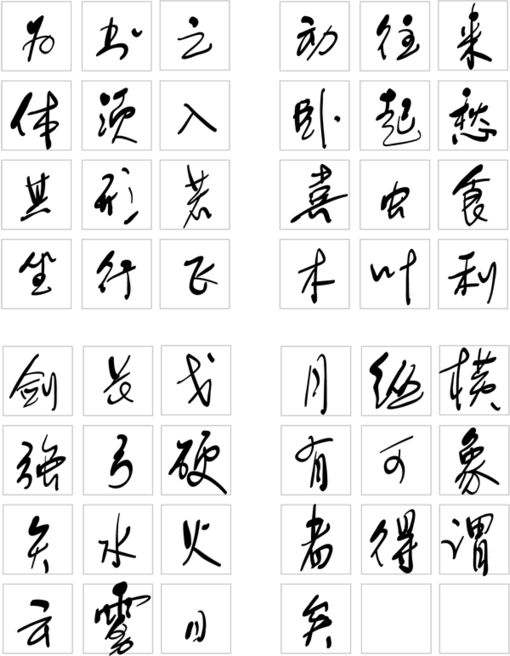 为书之
体须入
其形若
坐行飞
动往来
卧起愁
喜虫食
木叶利
剑长戈
强弓硬
矢水火
云雾日
月纵横
有可象
者得谓
矣